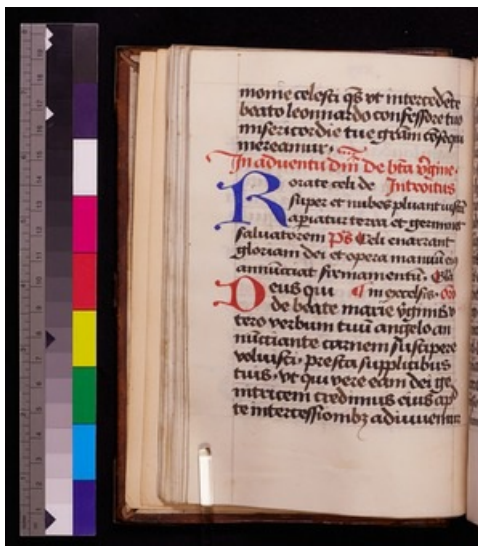 monie celesti q̄s vt intercedēte
beato leonnardo confessore tuo
misericordie tue gr̄am cōsequi
mereamur.
In adventu dn̄i De bt̄a v̄gine.
Rorate celi de Introitus
super et nubes pluant iustū
aperiatur terra et germinet
salvatorem Ps̄ Celi enarrant
gloriam dei et opera manuū eiꝰ
annūciat firmamentū. Gl̄a
Deus qui in excelsis. Or̄o
de beate marie v̄ginis v
tero verbum tuū angelo an
nūciante carnem suscipere
voluisti. presta supplicibus
tuis. vt qui vere eam dei ge
nitricem credimus eius ap̄
te intercessionibꝫ adiuvemur